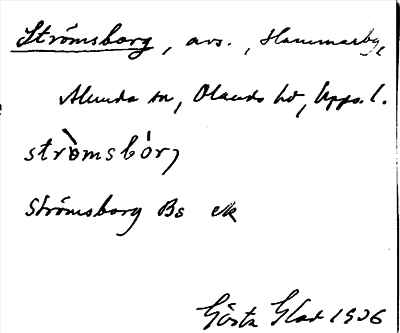 Strömsborg, avs., Hammarby,
Alunda sn, Olands hd, Upps. l.
strömsbórj
Strömsborg Bs ek
Gösta Glad 1936